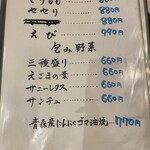 せせり 880円
880円
えび 990円
包み野菜
三種盛り 660円
えごまの葉 660円
サニーレタス 660円
サンチュ 660円
青森産にんにくゴマ油焼〜770円